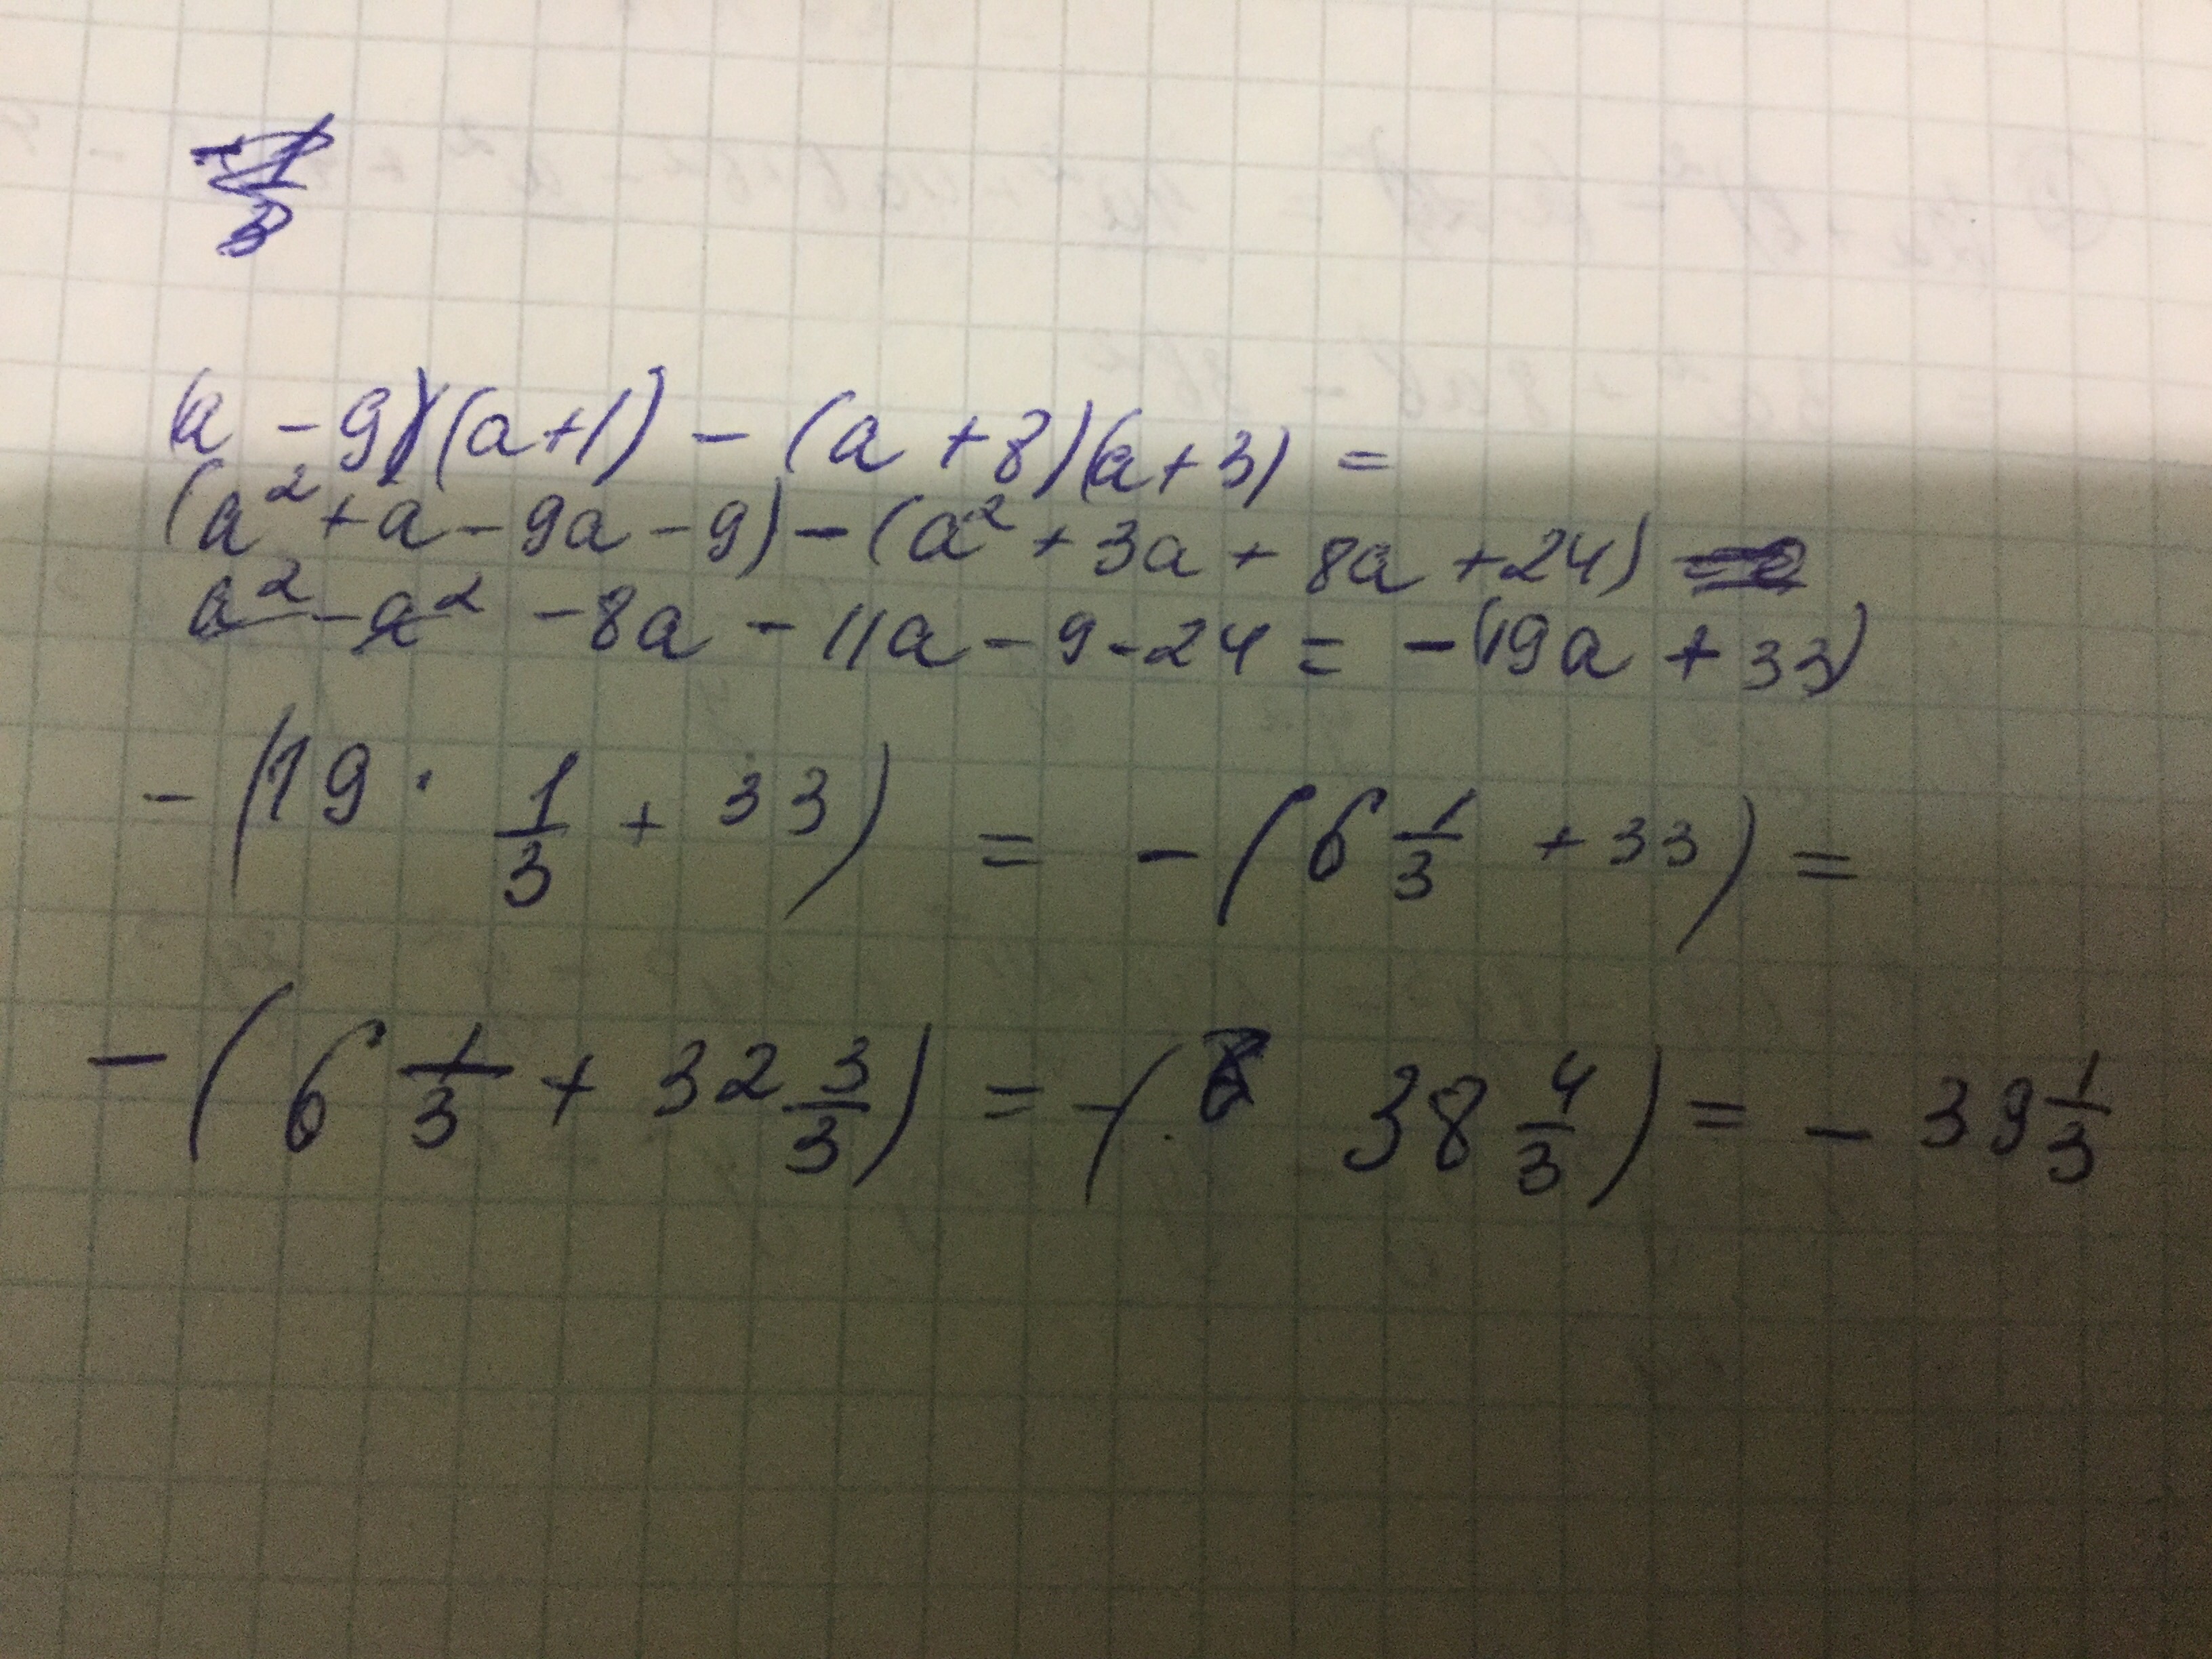 (a - 9)(a+1) - (a + 8)(a+3) =
(a² + a - 9a - 9) - (a² + 3a + 8a + 24)
a² - a² - 8a - 11a - 9 - 24 = -(19a + 33)
-(19 · 1/3 + 33) = -(6 1/3 + 33) =
-(6 1/3 + 32 3/3) = -(38 4/3) = - 39 1/3